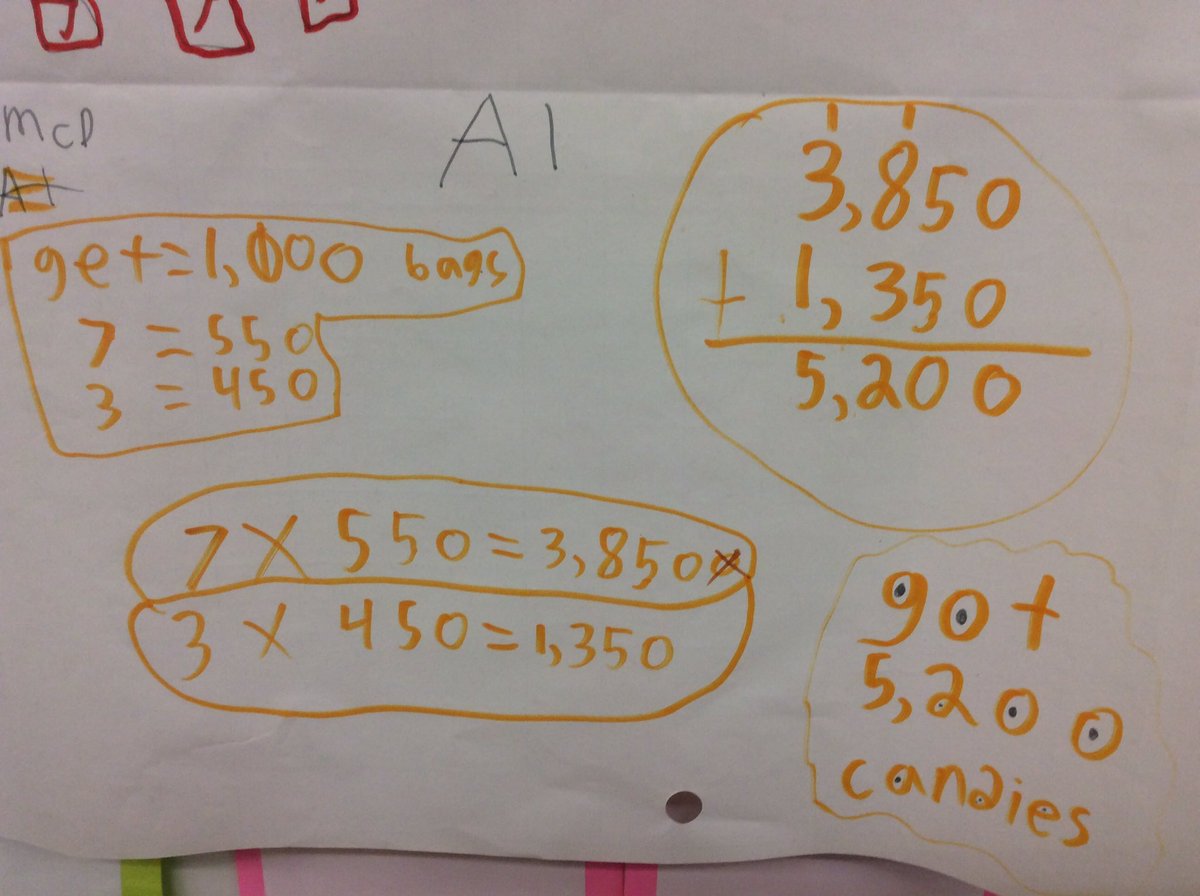 McD
A1
get=1,000 bags
7 = 550
3 = 450
3,850
+ 1,350
5,200
7 X 550=3,850
3 X 450=1,350
got
5,200
candies